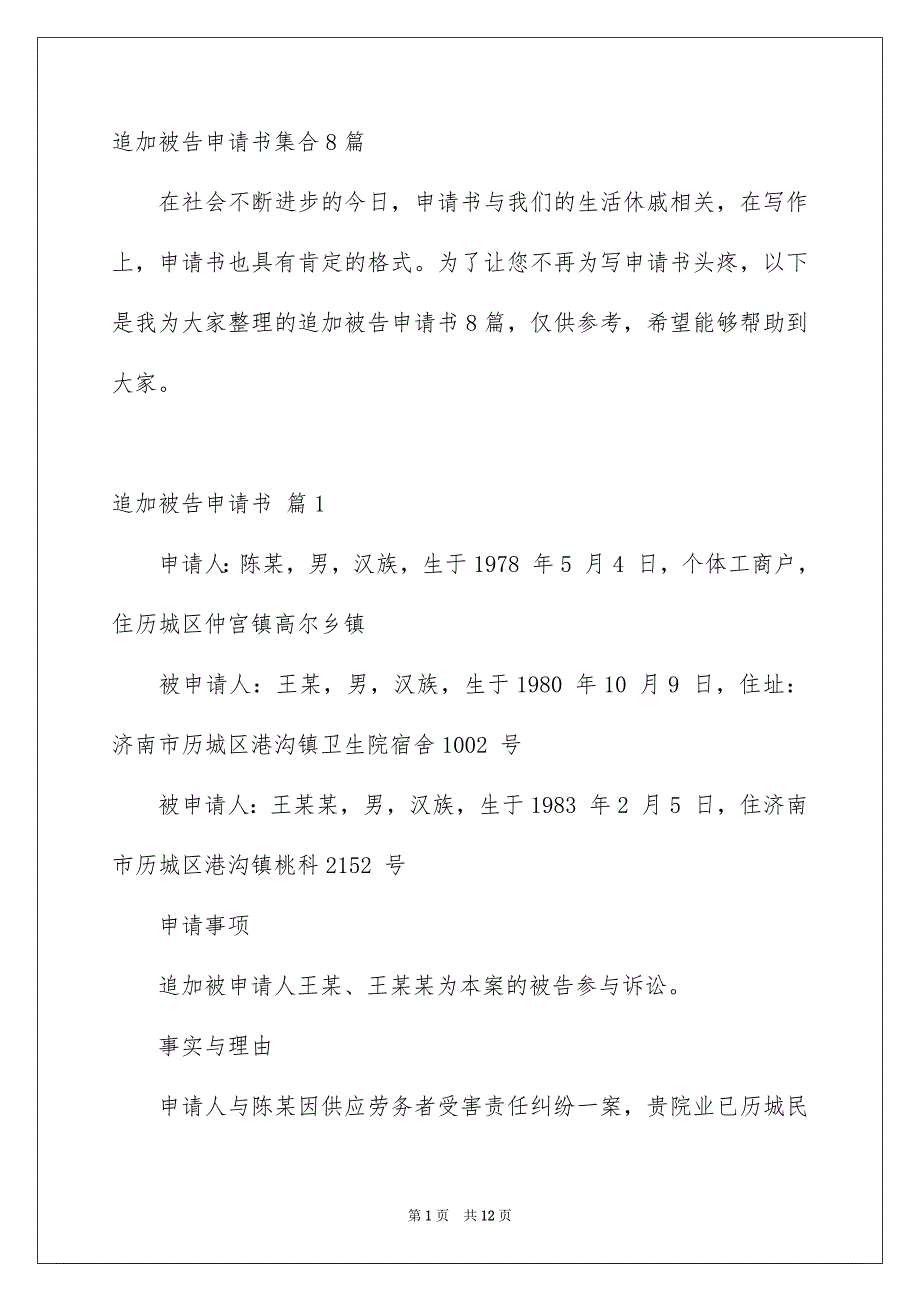 追加被告申请书集合8篇
在社会不断进步的今日，申请书与我们的生活休戚相关，在写作
上，申请书也具有肯定的格式。为了让您不再为写申请书头疼，以下
是我为大家整理的追加被告申请书8篇，仅供参考，希望能够帮助到
大家。
追加被告申请书 篇1
申请人：陈某，男，汉族，生于1978 年5 月4 日，个体工商户，
住历城区仲宫镇高尔乡镇
被申请人：王某，男，汉族，生于1980 年10 月9 日，住址：
济南市历城区港沟镇卫生院宿舍1002 号
被申请人：王某某，男，汉族，生于1983 年2 月5 日，住济南
市历城区港沟镇桃科2152 号
申请事项
追加被申请人王某、王某某为本案的被告参与诉讼。
事实与理由
申请人与陈某因供应劳务者受害责任纠纷一案，贵院业已历城民
第1页 共12页